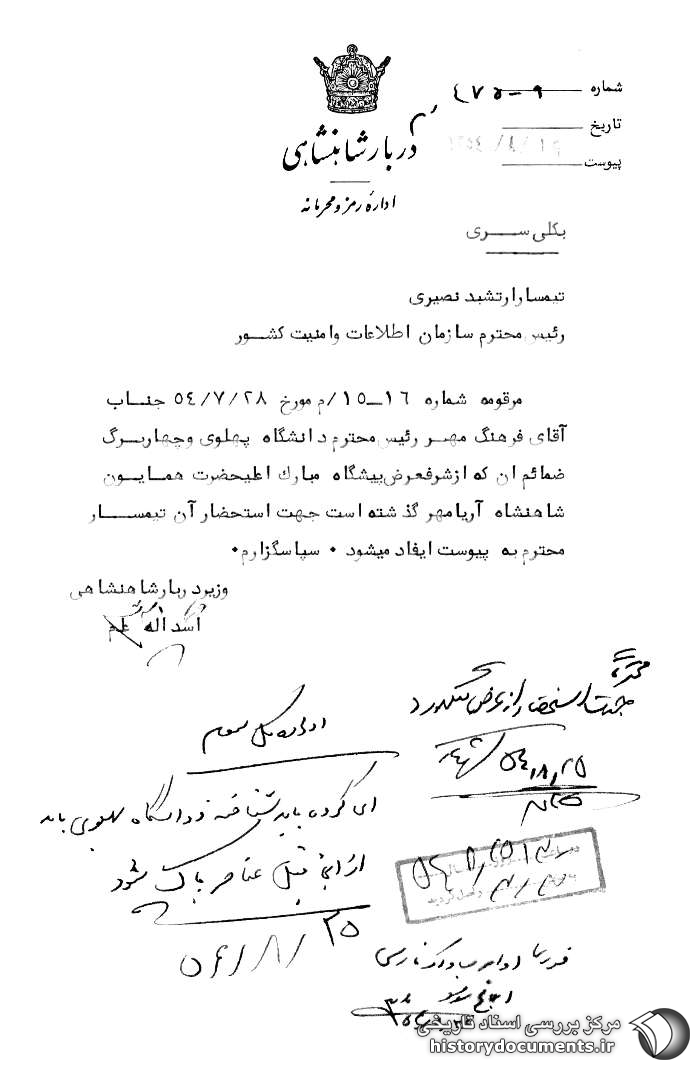 شماره ۴۷۵-۹/م
تاریخ
پیوست
دربار شاهنشاهی
اداره رمز و محرمانه
بکلی سری
تیمسار ارتشبد نصیری
رئیس محترم سازمان اطلاعات و امنیت کشور
مرقومه شماره ۱۶-۱۵/م مورخ ۵۴/۷/۲۸ جناب
آقای فرهنگ مهر رئیس محترم دانشگاه پهلوی و چهاربرگ
ضمائم ان که از شرفعرض پیشگاه مبارک اعلیحضرت همایون
شاهنشاه آریامهر گذشته است جهت استحضار آن تیمسار
محترم به پیوست ایفاد میشود . سپاسگزارم .
وزیر دربار شاهنشاهی
اسدالله علم
محترما
جهت استحضار از عرض میگذرد
۵۴/۸/۲۵
اداره کل سوم
این گروه باید شناخته و دانشگاه پهلوی باید
از این قبیل عناصر پاک شود
۵۴/۸/۲۵
فورا اوامر به ساواک فارس
ابلاغ شود
مرکز بررسی اسناد تاریخی
historydocuments.ir